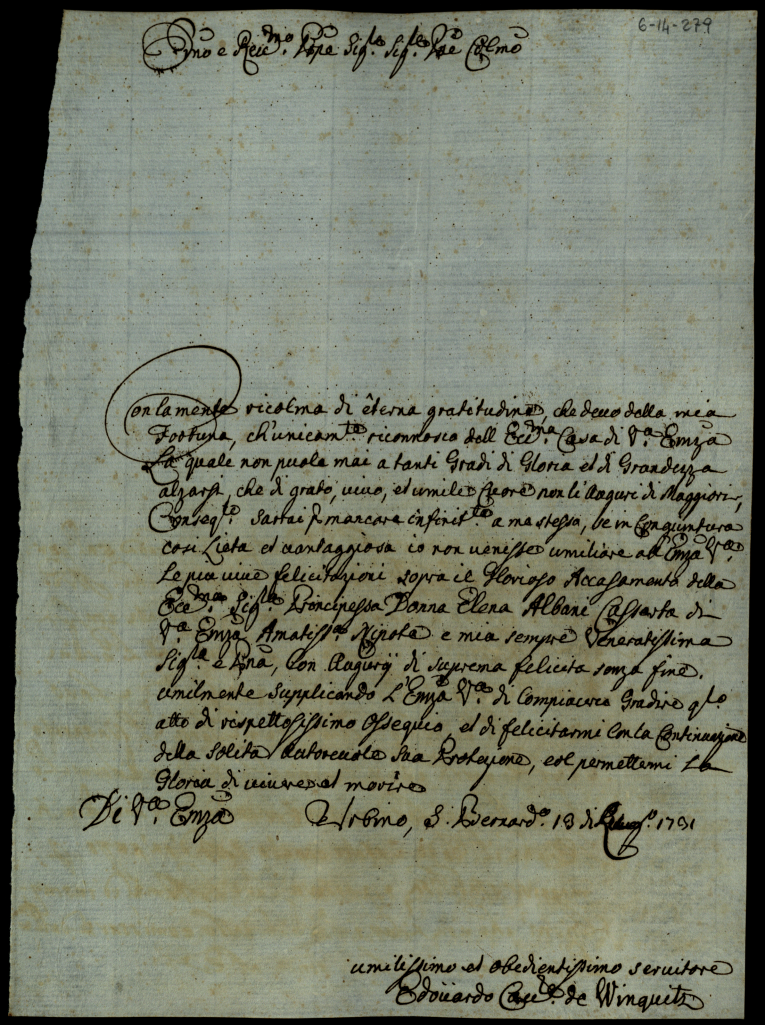 6-14-279
Emo e Reu:mo Pnpe Sig:re Sig:re Pne Colmo
Con la mente ricolma di êterna gratitudine, che deuo della mia
Fortuna, ch'unicam:te riconnosco dell' Ecc:ma Casa di V:a Emza
La quale non puole mai a tanti Gradi di Gloria et di Grandezza
alzarsi, che di grato, viuo, et umile Cuore non li Auguri di Maggiori,
Conseq:te mancare infinit:te a me stesso, se in Congiuntura
cosi Lieta et vantaggiosa io non venisse umiliare all' Emza V:a
Le piu viue felicitazioni sopra il Glorioso Accasamento della
Ecc:ma Sig:ra Principessa Donna Elena Albani
V:a Emza Amatiss:a Nipote e mia sempre Veneratissima
Sig:ra e Pna, con Augurÿ di suprema felicita senza fine.
umilmente Supplicando L'Emza V:a di Compiacersi Gradire q:to
atto di rispettosissimo Ossequio, et di felicitarmi Con la Continuazione
della Solita Autoreuole Sua Protezione, e col permettermi La
Gloria di viuere et morire
Di V:a Emza Urbino, S. Bernard:o 13 di 1731
umilissimo et obedientissimo seruitore
Edoüardo Cau:re de Winquitz